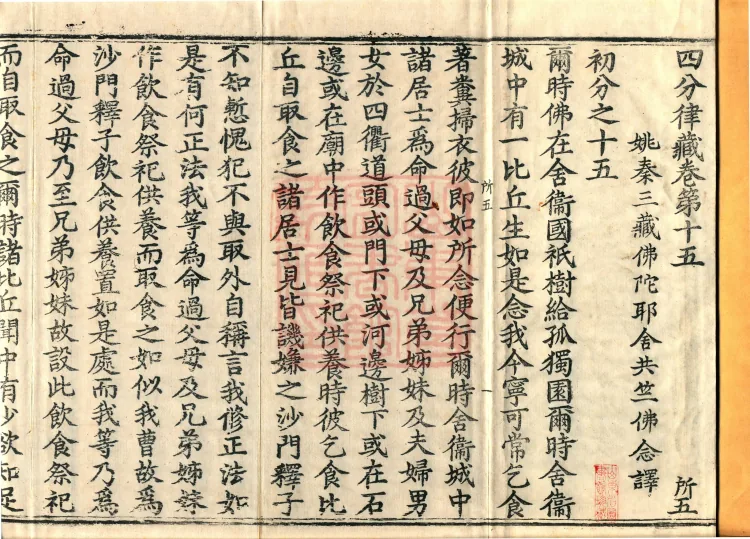 四分律藏卷第十五 所五
姚秦三藏佛陀耶舍共竺佛念譯
初分之十五
爾時佛在舍衞國祇樹給孤獨園爾時舍衞
城中有一比丘生如是念我今寧可常乞食
所五
著糞掃衣彼即如所念便行爾時舍衞城中
諸居士爲命過父母及兄弟姊妹及夫婦男
女於四衢道頭或門下或河邊樹下或在石
邊或在廟中作飮食祭祀供養時彼乞食比
丘自取食之諸居士見皆譏嫌之沙門釋子
不知慙愧犯不與取外自稱言我修正法如
是有何正法我等爲命過父母及兄弟姊妹
作飮食祭祀供養而取食之如似我曹故爲
沙門釋子飮食供養置如是處而我等乃爲
命過父母乃至兄弟姊妹故設此飮食祭祀
而自取食之爾時諸比丘聞中有少欲知足